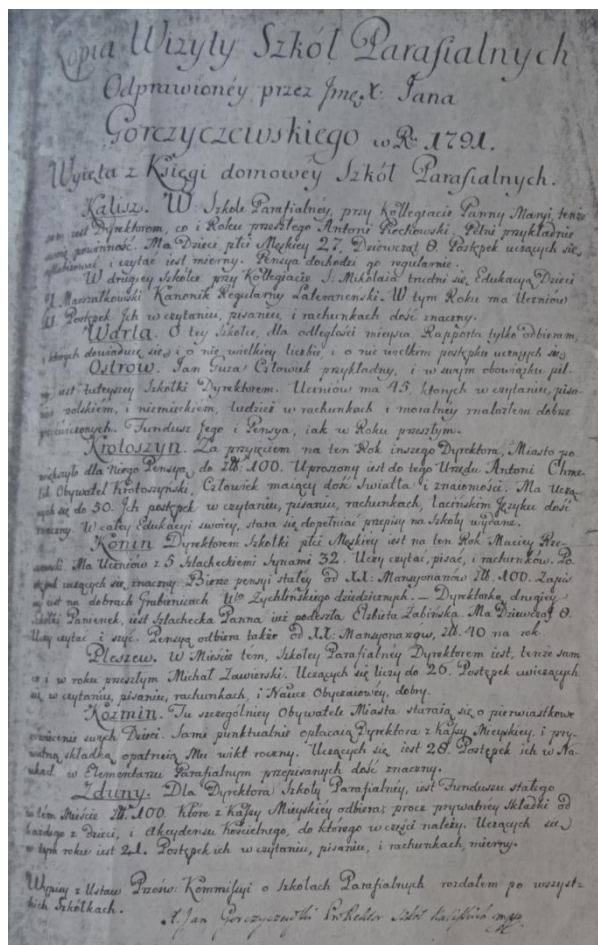 Kopia Wizyty Szkół Parafialnych
Odprawionéy przez Jmę X: Jana
Gorczyczewskiego w R: 1791.
Wyięta z Księgi domowéy Szkół Parafialnych.
Kalisz. W Szkole Parafialnéy, przy Kollegiacie Panny Maryi, tenże
sam iest Dyrektorem, co i Roku przeszłego Antoni Piechowski. Pełni przykładnie
swoię powinność. Ma Dzieci, płci Męskiey 27, Dziewcząt 8. Postępek uczących się,
i czytać iest mierny. Pensya dochodzi go regularnie.
W drugiey Szkółce przy Kollegiacie S: Mikołaia trudni się Edukacyą Dzieci
Marszałkowski Kanonik Regularny Lateranenski. W tym Roku ma Uczniów
41. Postępek Jch w czytaniu, pisaniu, i rachunkach dość znaczny.
Warta. O tey Szkółce, dla odległości mieysca, Rapporta tylko odbieram,
z których dowiaduię się, i o nie wielkiey liczbie, i o nie wielkim postępku uczących się.
Ostrow. Jan Guza Człowiek przykładny, i w swym obowiązku pil-
ny, iest tuteyszey Szkółki Dyrektorem. Uczniów ma 45, których w czytaniu, pisa-
niu polskiem, i niemieckiem, tudzież w rachunkach i moralney znalazłem dobrze
ćwiczonych. Fundusz Jego i Pensya, iak w Roku przeszłym.
Krotoszyn. Za przyięciem na ten Rok inszego Dyrektora, Miasto po
większyło dla Niego Pensyą do Zł. 100. Uproszony iest do tego Urzędu Antoni Chme-
lik Obywatel Krotoszyński, Człowiek maiący dość Swiatła i znaiomości. Ma Uczą-
cych się do 50. Jch postępek w czytaniu, pisaniu, rachunkach, Łacińskim Języku dość
znaczny. W całey Edukacyi swoiey, stara się dopełniać przepisy na Szkoły wydane.
Konin Dyrektorem Szkółki płci Męskiey iest na ten Rok Maciey Rze-
Ma Uczniow z 5 Szlacheckiemi Synami 32. Uczy czytać, pisać, i rachunków. Po-
stępek uczących się znaczny. Bierze pensyi stałey od XX: Mansyonarzów Zł. 100. Zapis
iest na dobrach Grabienicach Zychlińskiego dziedzicznych. — Dyrektorką drugiey
Szkółki Panienek, iest Szlachecka Panna iuż podeszła Elżbieta Żabińska. Ma Dziewcząt 8.
Uczy czytać i szyć. Pensyą odbiera także od XX: Mansyonarzów, Zł. 40 na rok.
Pleszew. W Mieście tem, Szkoley Parafialney Dyrektorem iest, tenże sam
co i w roku przeszłym Michał Zawierski. Uczących się liczy do 26. Postępek ćwiczących
się w czytaniu, pisaniu, rachunkach, i Nauce Obyczaiowey, dobry.
Kozmin. Tu szczególniey Obywatele Miasta staraią się o pierwiastkowe
ćwiczenie swych Dzieci. Sami punktualnie opłacaią Dyrektora z Kassy Mieyskiey, i pry-
watną składką opatruią Mu wikt roczny. Uczących się iest 28. Postępek ich w Na-
ukach w Elementarzu Parafialnym przepisanych dość znaczny.
Zduny. Dla Dyrektora Szkoły Parafialney, iest Funduszu stałego
w tem Mieście Zł. 100. Które z Kassy Mieyskiéy odbiera; procz prywatney składki od
każdego z dzieci, i Akcydensu Kościelnego, do którego w części należy. Uczących się
w tym roku iest 21. Postępek ich w czytaniu, pisaniu, i rachunkach, mierny.
Wypisy z Ustaw Prześw: Kommissyi o Szkołach Parafialnych rozdałem po wszyst-
kich Szkółkach.
X. Jan Gorczyczewski ProRektor Szkół Kaliskich mp